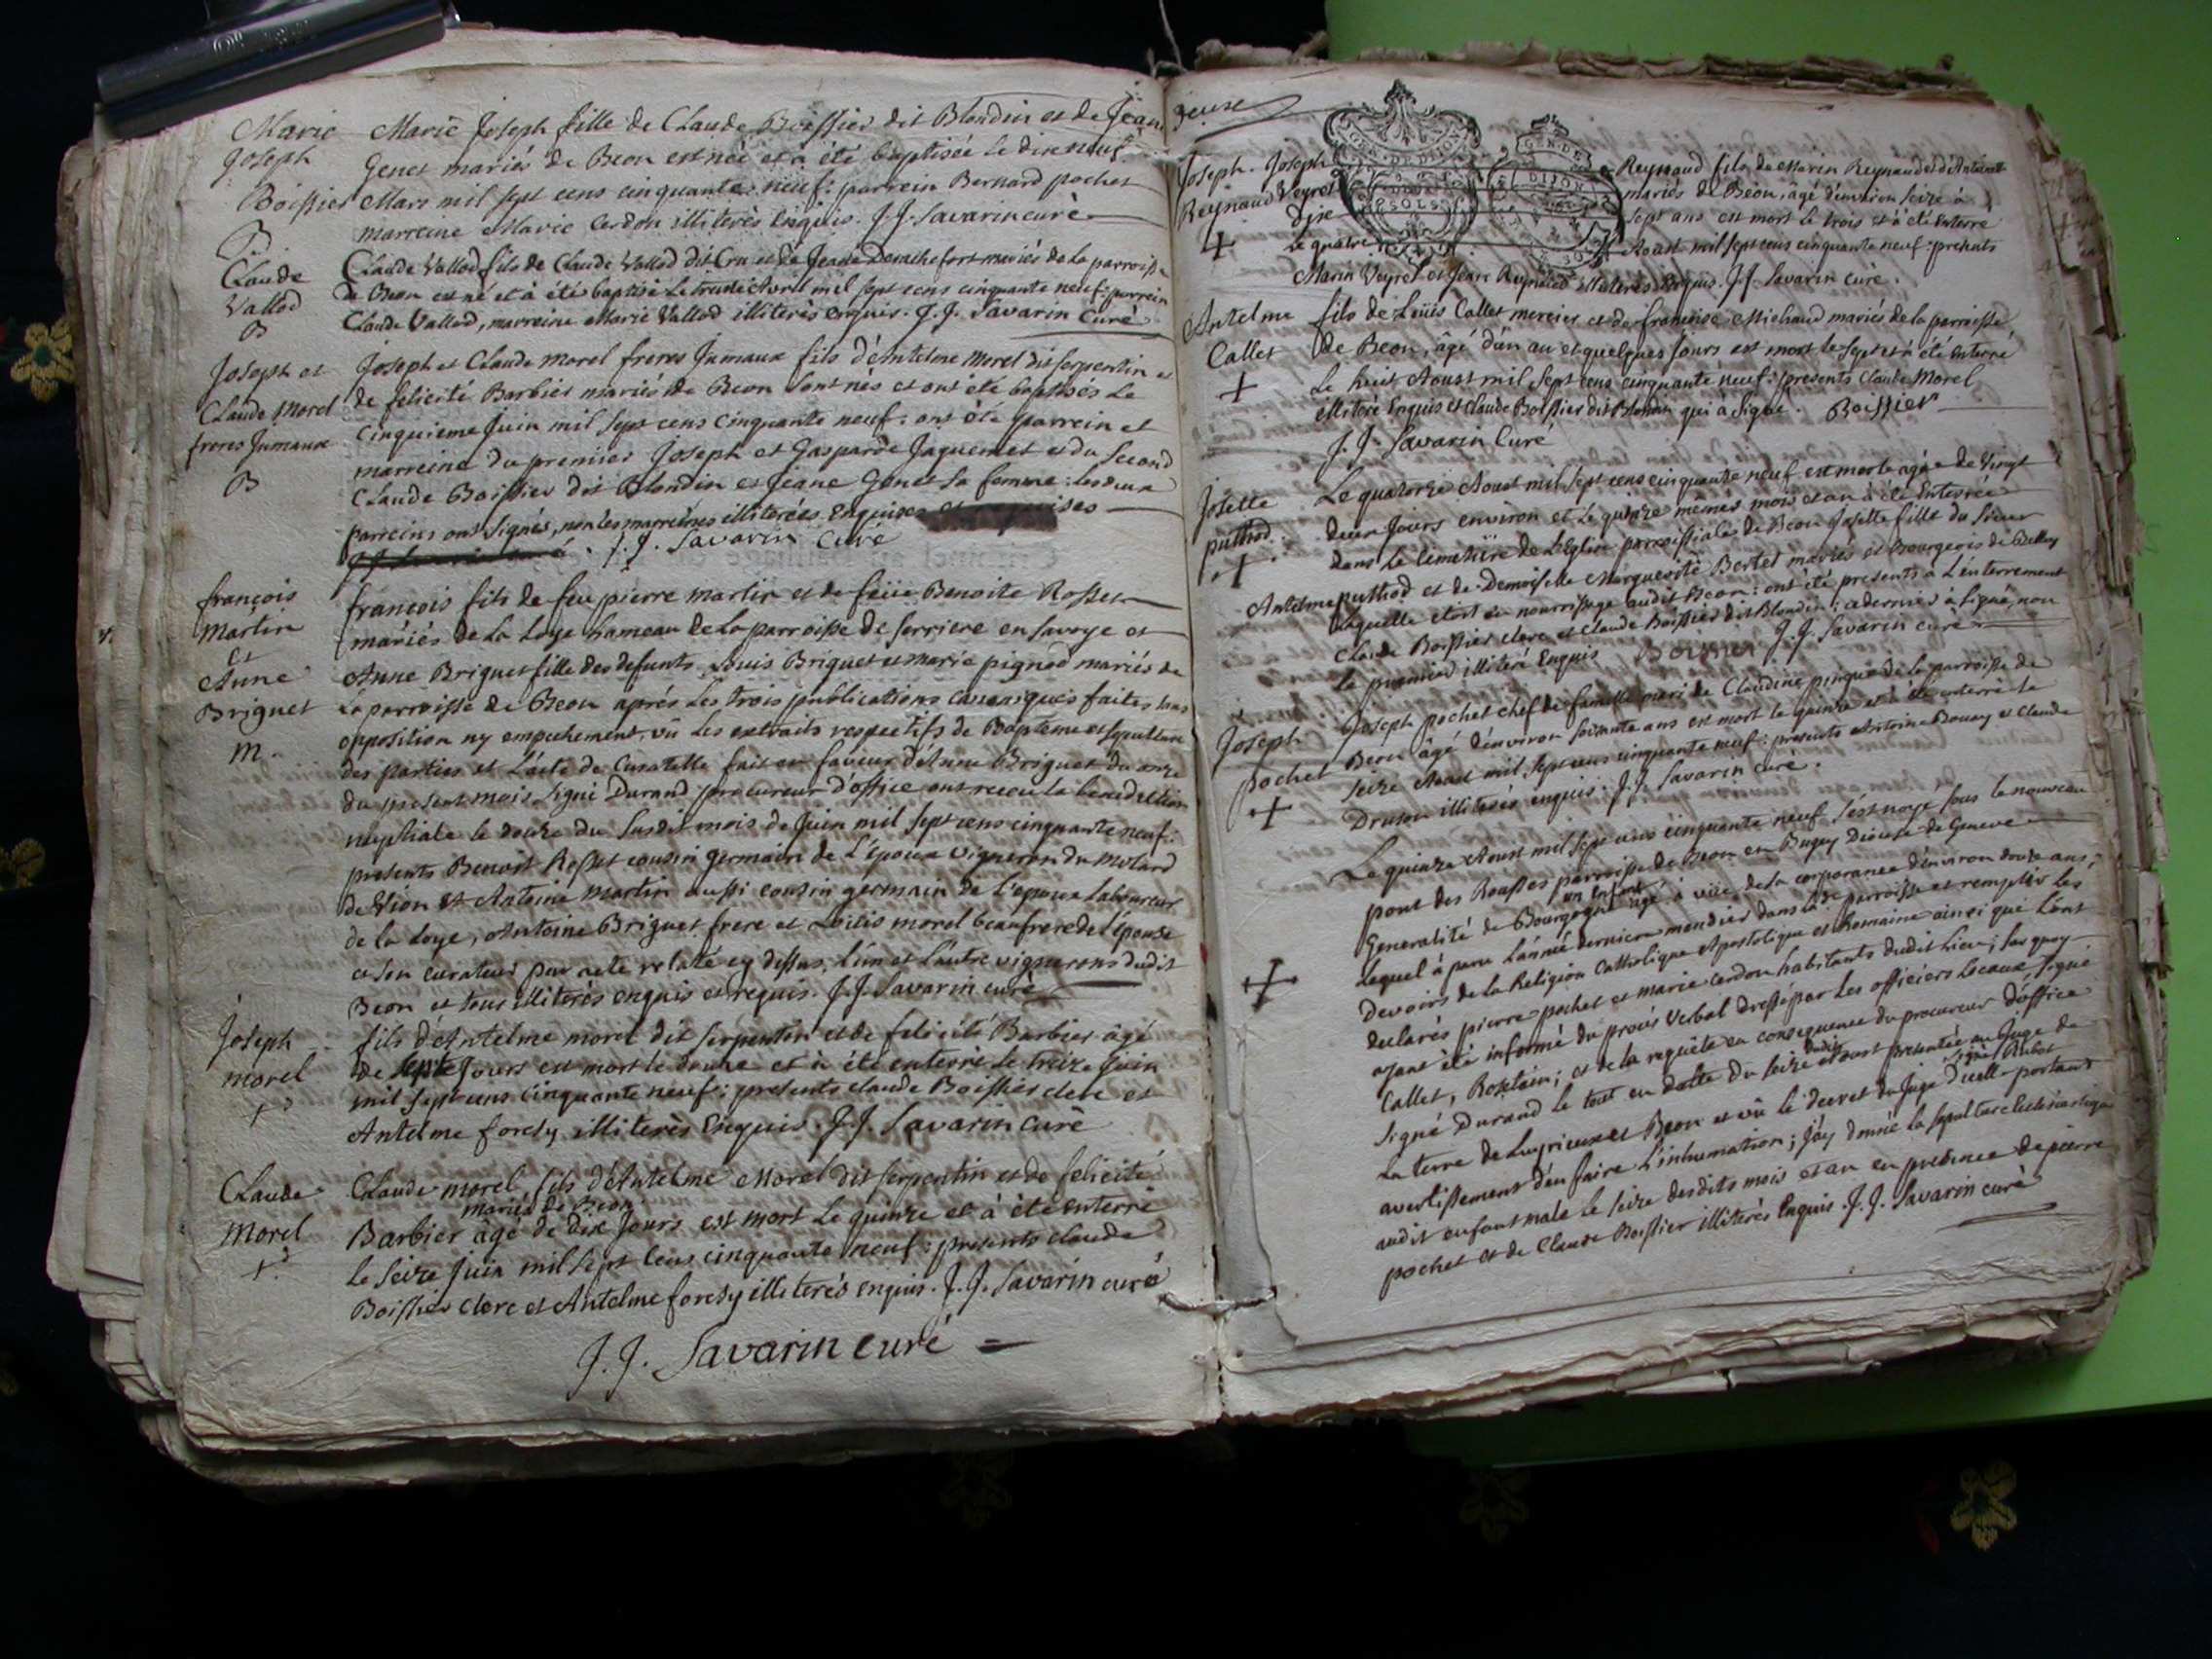 Marie Marie Joseph fille de Claude Boissier dit Blondin et de Jeane
Joseph Genet mariés de Beon est née et a été baptisée le dix neuf
Boissier Mars mil sept cens cinquante neuf: parrein Bernard pochet
B. marreine Marie Cerdon illiterés Enquis. J.J. Savarin curé
Claude Claude Vallod fils de Claude Vallod dit Cru et de Jeane mariés de la parroisse
Vallod de Beon est né et à été baptisé le Avril mil sept cens cinquante neuf: parrein
B Claude Vallod, marreine Marie Vallod illiterés enquis. J.J. Savarin Curé
Joseph et Joseph et Claude Morel freres Jumaux fils d'Antelme Morel dit serpentin et
Claude Morel de felicité Barbier mariés de Beon sont nés et ont été baptisés le
freres Jumaux Cinquieme Juin mil sept cens Cinquante neuf: ont été parrein et
B marreine du premier Joseph et Gasparde Jaquemet et du second
Claude Boissier dit Blondin et Jeane Genet sa femme: les deux
parreins ont signés, non les marreines illiterées Enquises
J.J. Savarin Curé
françois françois fils de feu pierre martin et de feüe Benoite Rosset
Martin mariés de la Loye hameau de la parroisse de serriere en savoye et
Et
Anne Anne Briguet fille des defunts Louis Briguet et marie pignod mariés de
Briguet la parroisse de Beon aprés les trois publications canoniques faites sans
M. opposition ny empechement, vû les extraits respectifs de Bapteme et sepulture
des parties et l'acte de Curatelle fait en faveur d'Anne Briguet du onze
du present mois signé Durand procureur d'office ont receu la benediction
nuptiale le douze du susdit mois de Juin mil sept cens cinquante neuf:
presents Benoit Rosset cousin germain de l'époux vigneron du Molard
de Vion et Antoine Martin aussi cousin germain de l'epoux Laboureur
de la Loye, Antoine Briguet frere et Loüis morel beaufrere de l'épouse
et son curateur par acte relaté cy dessus, l'un et l'autre vignerons dudit
Beon et tous illiterés enquis et requis. J.J. Savarin curé
Joseph fils d'Antelme morel dit serpentin et de felicité Barbier âgé
morel de sept Jours est mort le douze et à été enterré le treize Juin
+ mil sept cens cinquante neuf: presents claude Boissier clerc et
Antelme foresy illiterés Enquis. J.J. Savarin Curé
Claude Claude morel fils d'Antelme Morel dit serpentin et de felicité
mariés de Beon
Morel Barbier âgé de dix Jours est mort le quinze et à été enterré
+ le seize Juin mil sept cens cinquante neuf: presents claude
Boissier clerc et Antelme foresy illiterés enquis. J.J. Savarin curé
J.J. Savarin curé
GEN. DE DIJON
GEN. DE DIJON
SOLS
Joseph Joseph Reynaud fils de Marin Reynaud et d'Antelmette
Reynaud Veyret mariés de Beon, âgé d'environ seize à
Dix sept ans est mort le trois et à été Enterré
+ Le quatre Aoust mil sept cens cinquante neuf: presents
Marin Veyret et Jean Reynaud illiterés Enquis. J.J. Savarin Curé.
Antelme fils de Loüis Callet mercier et de françoise Michaud mariés de la parroisse
Callet de Beon, âgé d'un an et quelques Jours est mort le sept et à été Enterré
+ Le huit Aoust mil sept cens cinquante neuf: presents Claude Morel
illiteré Enquis et Claude Boissier dit Blondin qui à signé. Boissier
J.J. Savarin Curé
Josette Le quatorze Aoust mil sept cens cinquante neuf est morte agée de vingt
puthod deux Jours environ et le quinze mêmes mois et an à été Enterrée
+ dans le Cimetiere de l'Eglise parroissiale de Beon Josette fille du sieur
Antelme puthod et de Demoiselle Marguerite Bertet mariés et Bourgeois de Belley
laquelle etoit en nourrissage audit Beon: ont été presents à l'enterrement
Claude Boissier clerc et Claude Boissier dit Blondin: ce dernier à signé, non
le premier illiteré Enquis Boissier J.J. Savarin curé
Joseph Joseph pochet chef de famille mari de Claudine pingue de la parroisse de
pochet Beon âgé d'environ soixante ans est mort le quinze et à été enterré le
+ seize Aoust mil sept cens cinquante neuf: presents Antoine et Claude
illiterés enquis. J.J. Savarin curé.
Le quinze Aoust mil sept cens cinquante neuf s'est noyé sous le nouveau
pont des Rousses parroisse de Beon en Bugey Diocese de Geneve
un Enfant
Generalité de Bourgogne agé à vüe de la corporance d'environ douze ans,
+ Lequel à paru l'année derniere mendier dans la de parroisse et remplir les
devoirs de la Religion Catholique Apostolique et Romaine ainsi que l'ont
declarés pierre pochet et marie cerdon habitants dudit Lieu; sur quoy
ayant été informé du procés verbal dressé par les officiers Locaux, signé
Callet, et de la requête en consequence du procureur d'office
signé Durand le tout en datte du seize dudit Aoust presentée au Juge de
la terre de Luyrieux et Beon et vû le decret du Juge d'icelle portant
avertissement d'en faire l'inhumation; j'ay donné la sepulture Ecclesiastique
audit enfant male le seize desdits mois et an en presence de pierre
pochet et de Claude Boissier illiterés Enquis. J.J. Savarin curé